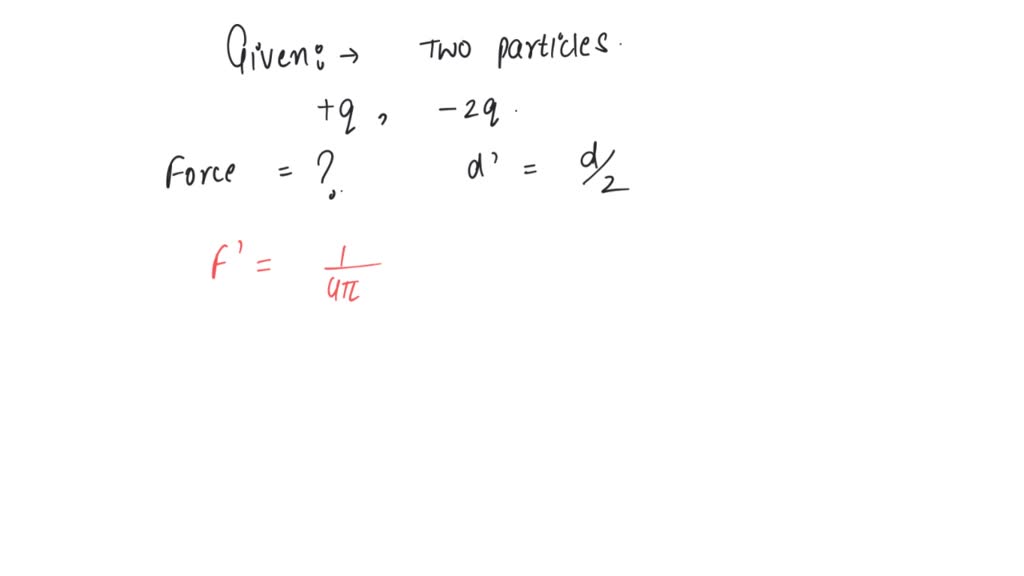 Given: → Two particles.
+q, -2q.
Force = ? d' = d/2
F' = 1/4π